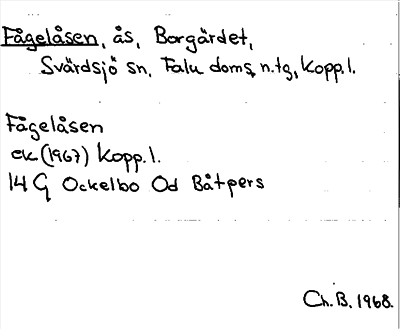 Fågelåsen, ås, Borgärdet,
Svärdsjö sn, Falu doms. n. tg, Kopp. l.
Fågelåsen
ek (1967) Kopp. l.
14 G Ockelbo Od Båtpers
Ch. B. 1968.